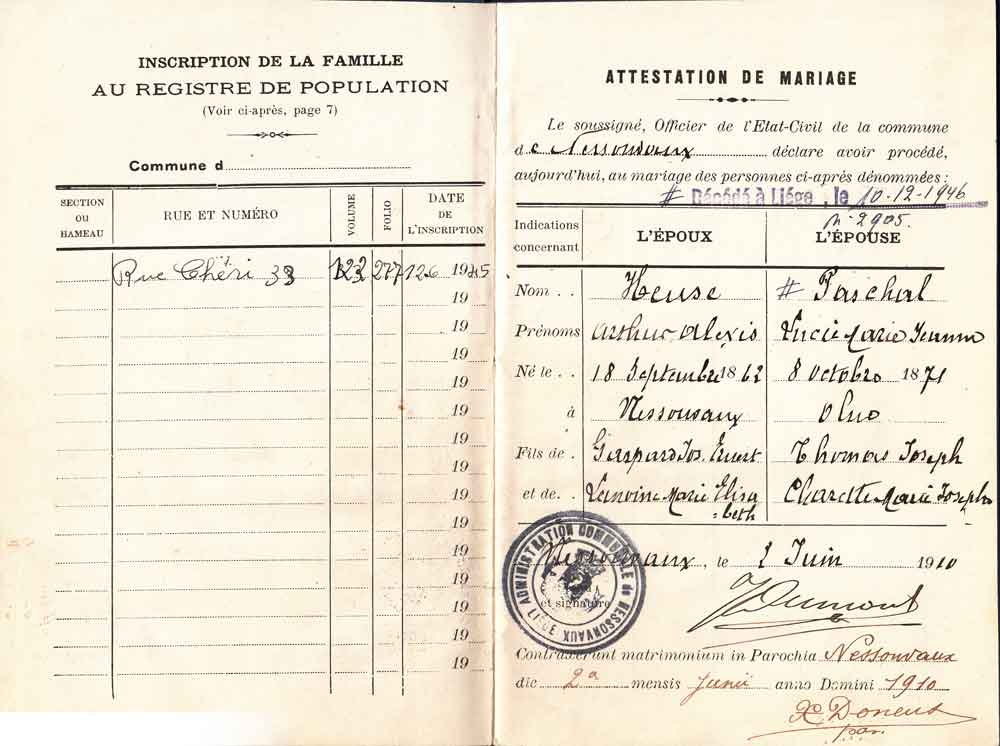 INSCRIPTION DE LA FAMILLE
AU REGISTRE DE POPULATION
(Voir ci-après, page 7)
Commune d
SECTION OU HAMEAU
RUE ET NUMÉRO
VOLUME
FOLIO
DATE DE L'INSCRIPTION
Rue Chéri 33 123 277 12 6 1945
19
19
19
19
19
19
19
19
19
19
19
19
19
19
ATTESTATION DE MARIAGE
Le soussigné, Officier de l'Etat-Civil de la commune
de Nessonvaux déclare avoir procédé,
aujourd'hui, au mariage des personnes ci-après dénommées :
# Décédé à Liége, le 10-12-1946
n° 2905.
Indications concernant L'ÉPOUX L'ÉPOUSE
Nom . . Heuse # Paschal
Prénoms Arthur Alexis Lucie Marie Jeanne
Né le . . 18 Septembre 1862 8 octobre 1871
à Nessonvaux Olne
Fils de . Gaspard Jos. Ernest Thomas Joseph
et de . . Marie Elisa=beth Charette Marie Josèphe
Nessonvaux, le 2 Juin 1910
et signature
ADMINISTRATION COMMUNALE de NESSONVAUX LIÈGE
J Dumont
Contraxerunt matrimonium in Parochia Nessonvaux
die 2a mensis Junii anno Domini 1910